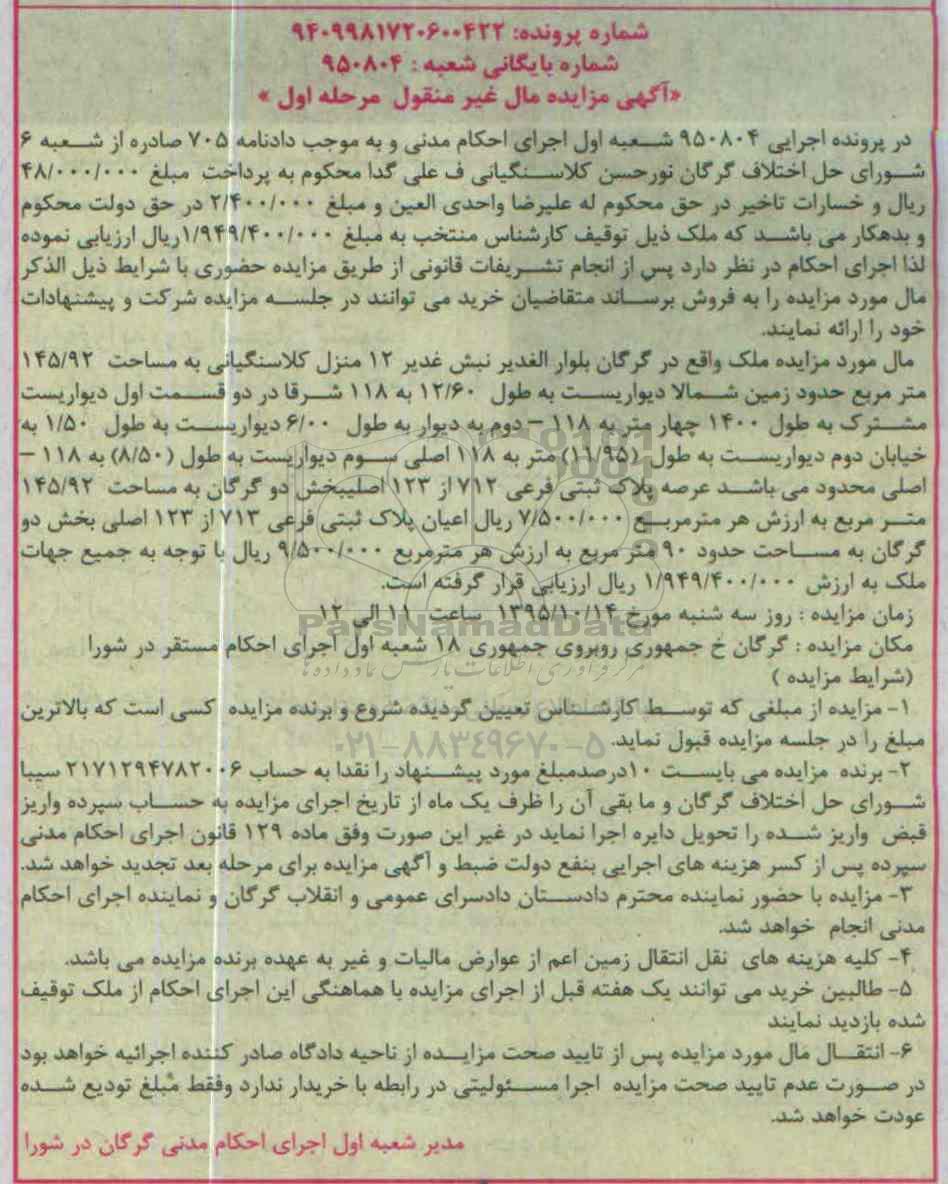 شماره پرونده: ۹۴۰۹۹۸۱۷۲۰۶۰۰۴۲۲
شماره بایگانی شعبه : ۹۵۰۸۰۴
«آگهی مزایده مال غیر منقول مرحله اول »
در پرونده اجرایی ۹۵۰۸۰۴ شعبه اول اجرای احکام مدنی و به موجب دادنامه ۷۰۵ صادره از شعبه ۶
شورای حل اختلاف گرگان نورحسن کلاسنگیانی ف علی گدا محکوم به پرداخت مبلغ ۴۸/۰۰۰/۰۰۰
ریال و خسارات تاخیر در حق محکوم له علیرضا واحدی العین و مبلغ ۲/۴۰۰/۰۰۰ در حق دولت محکوم
و بدهکار می باشد که ملک ذیل توقیف کارشناس منتخب به مبلغ ۱/۹۴۹/۴۰۰/۰۰۰ریال ارزیابی نموده
لذا اجرای احکام در نظر دارد پس از انجام تشریفات قانونی از طریق مزایده حضوری با شرایط ذیل الذکر
مال مورد مزایده را به فروش برساند متقاضیان خرید می توانند در جلسه مزایده شرکت و پیشنهادات
خود را ارائه نمایند.
مال مورد مزایده ملک واقع در گرگان بلوار الغدیر نبش غدیر ۱۲ منزل کلاسنگیانی به مساحت ۱۴۵/۹۲
متر مربع حدود زمین شمالا دیواریست به طول ۱۲/۶۰ به ۱۱۸ شرقا در دو قسمت اول دیواریست
مشترک به طول ۱۴۰۰ چهار متر به ۱۱۸ – دوم به دیوار به طول ۶/۰۰ دیواریست به طول ۱/۵۰ به
خیابان دوم دیواریست به طول (۱۱/۹۵) متر به ۱۱۸ اصلی سوم دیواریست به طول (۸/۵۰) به ۱۱۸ –
اصلی محدود می باشد عرصه پلاک ثبتی فرعی ۷۱۲ از ۱۲۳ اصلیبخش دو گرگان به مساحت ۱۴۵/۹۲
متر مربع به ارزش هر مترمربع ۷/۵۰۰/۰۰۰ ریال اعیان پلاک ثبتی فرعی ۷۱۳ از ۱۲۳ اصلی بخش دو
گرگان به مساحت حدود ۹۰ متر مربع به ارزش هر مترمربع ۹/۵۰۰/۰۰۰ ریال با توجه به جمیع جهات
ملک به ارزش ۱/۹۴۹/۴۰۰/۰۰۰ ریال ارزیابی قرار گرفته است.
زمان مزایده : روز سه شنبه مورخ ۱۳۹۵/۱۰/۱۴ ساعت ۱۱ الی ۱۲
ParsNamadData
مکان مزایده : گرگان خ جمهوری روبروی جمهوری ۱۸ شعبه اول اجرای احکام مستقر در شورا
مرکز فرآوری اطلاعات پارس نماد داده ها
(شرایط مزایده )
۱- مزایده از مبلغی که توسط کارشناس تعیین گردیده شروع و برنده مزایده کسی است که بالاترین
مبلغ را در جلسه مزایده قبول نماید.
۰۲۱-۸۸۳۴۹۶۷۰-۵
۲- برنده مزایده می بایست ۱۰درصدمبلغ مورد پیشنهاد را نقدا به حساب ۲۱۷۱۲۹۴۷۸۲۰۰۶ سیبا
شورای حل اختلاف گرگان و ما بقی آن را ظرف یک ماه از تاریخ اجرای مزایده به حساب سپرده واریز
قبض واریز شده را تحویل دایره اجرا نماید در غیر این صورت وفق ماده ۱۲۹ قانون اجرای احکام مدنی
سپرده پس از کسر هزینه های اجرایی بنفع دولت ضبط و آگهی مزایده برای مرحله بعد تجدید خواهد شد.
۳- مزایده با حضور نماینده محترم دادستان دادسرای عمومی و انقلاب گرگان و نماینده اجرای احکام
مدنی انجام خواهد شد.
۴- کلیه هزینه های نقل انتقال زمین اعم از عوارض مالیات و غیر به عهده برنده مزایده می باشد.
۵- طالبین خرید می توانند یک هفته قبل از اجرای مزایده با هماهنگی این اجرای احکام از ملک توقیف
شده بازدید نمایند
۶- انتقال مال مورد مزایده پس از تایید صحت مزایده از ناحیه دادگاه صادر کننده اجرائیه خواهد بود
در صورت عدم تایید صحت مزایده اجرا مسئولیتی در رابطه با خریدار ندارد وفقط مبلغ تودیع شده
عودت خواهد شد.
مدیر شعبه اول اجرای احکام مدنی گرگان در شورا